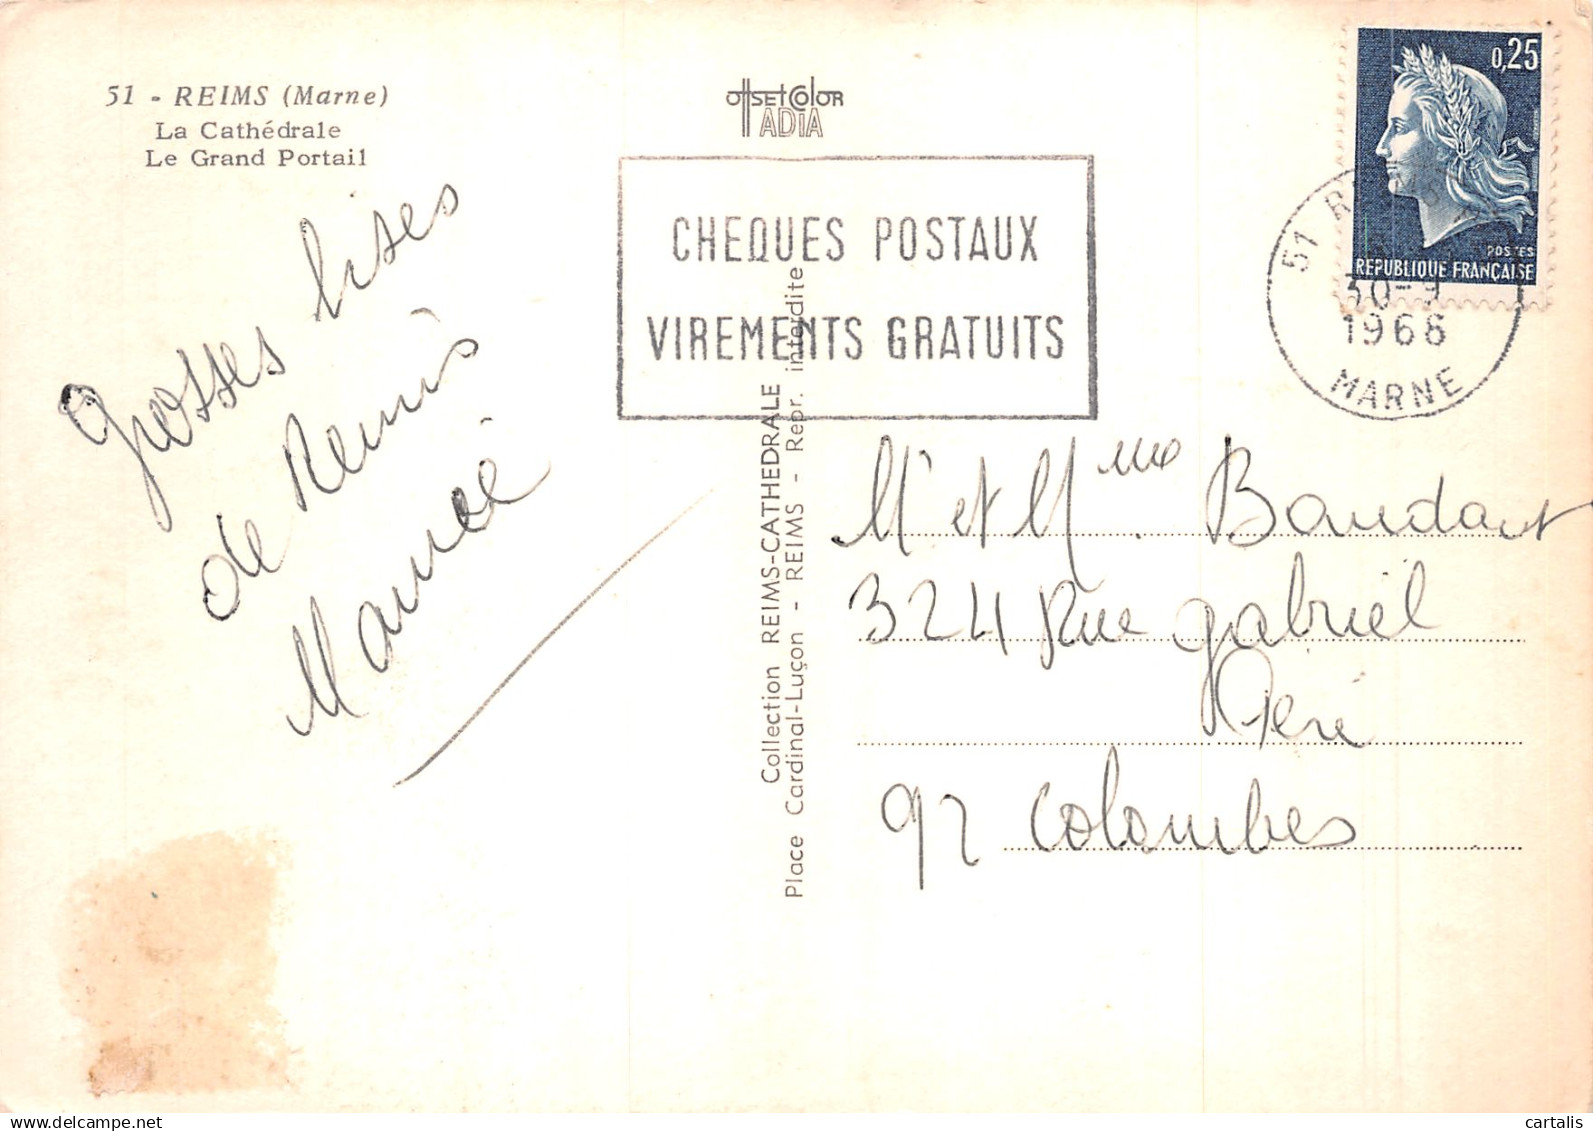 51 - REIMS (Marne)
La Cathédrale
Le Grand Portail
offset Color
ADIA
0,25
POSTES
REPUBLIQUE FRANÇAISE
CHEQUES POSTAUX
VIREMENTS GRATUITS
51 REIMS
30-9
1968
MARNE
Grosses bises
de Reims
Collection REIMS-CATHEDRALE
Place Cardinal-Luçon - REIMS - Repr. interdite
Mr et Mme
324 Rue Gabriel
Péri
92 Colombes
cartalis